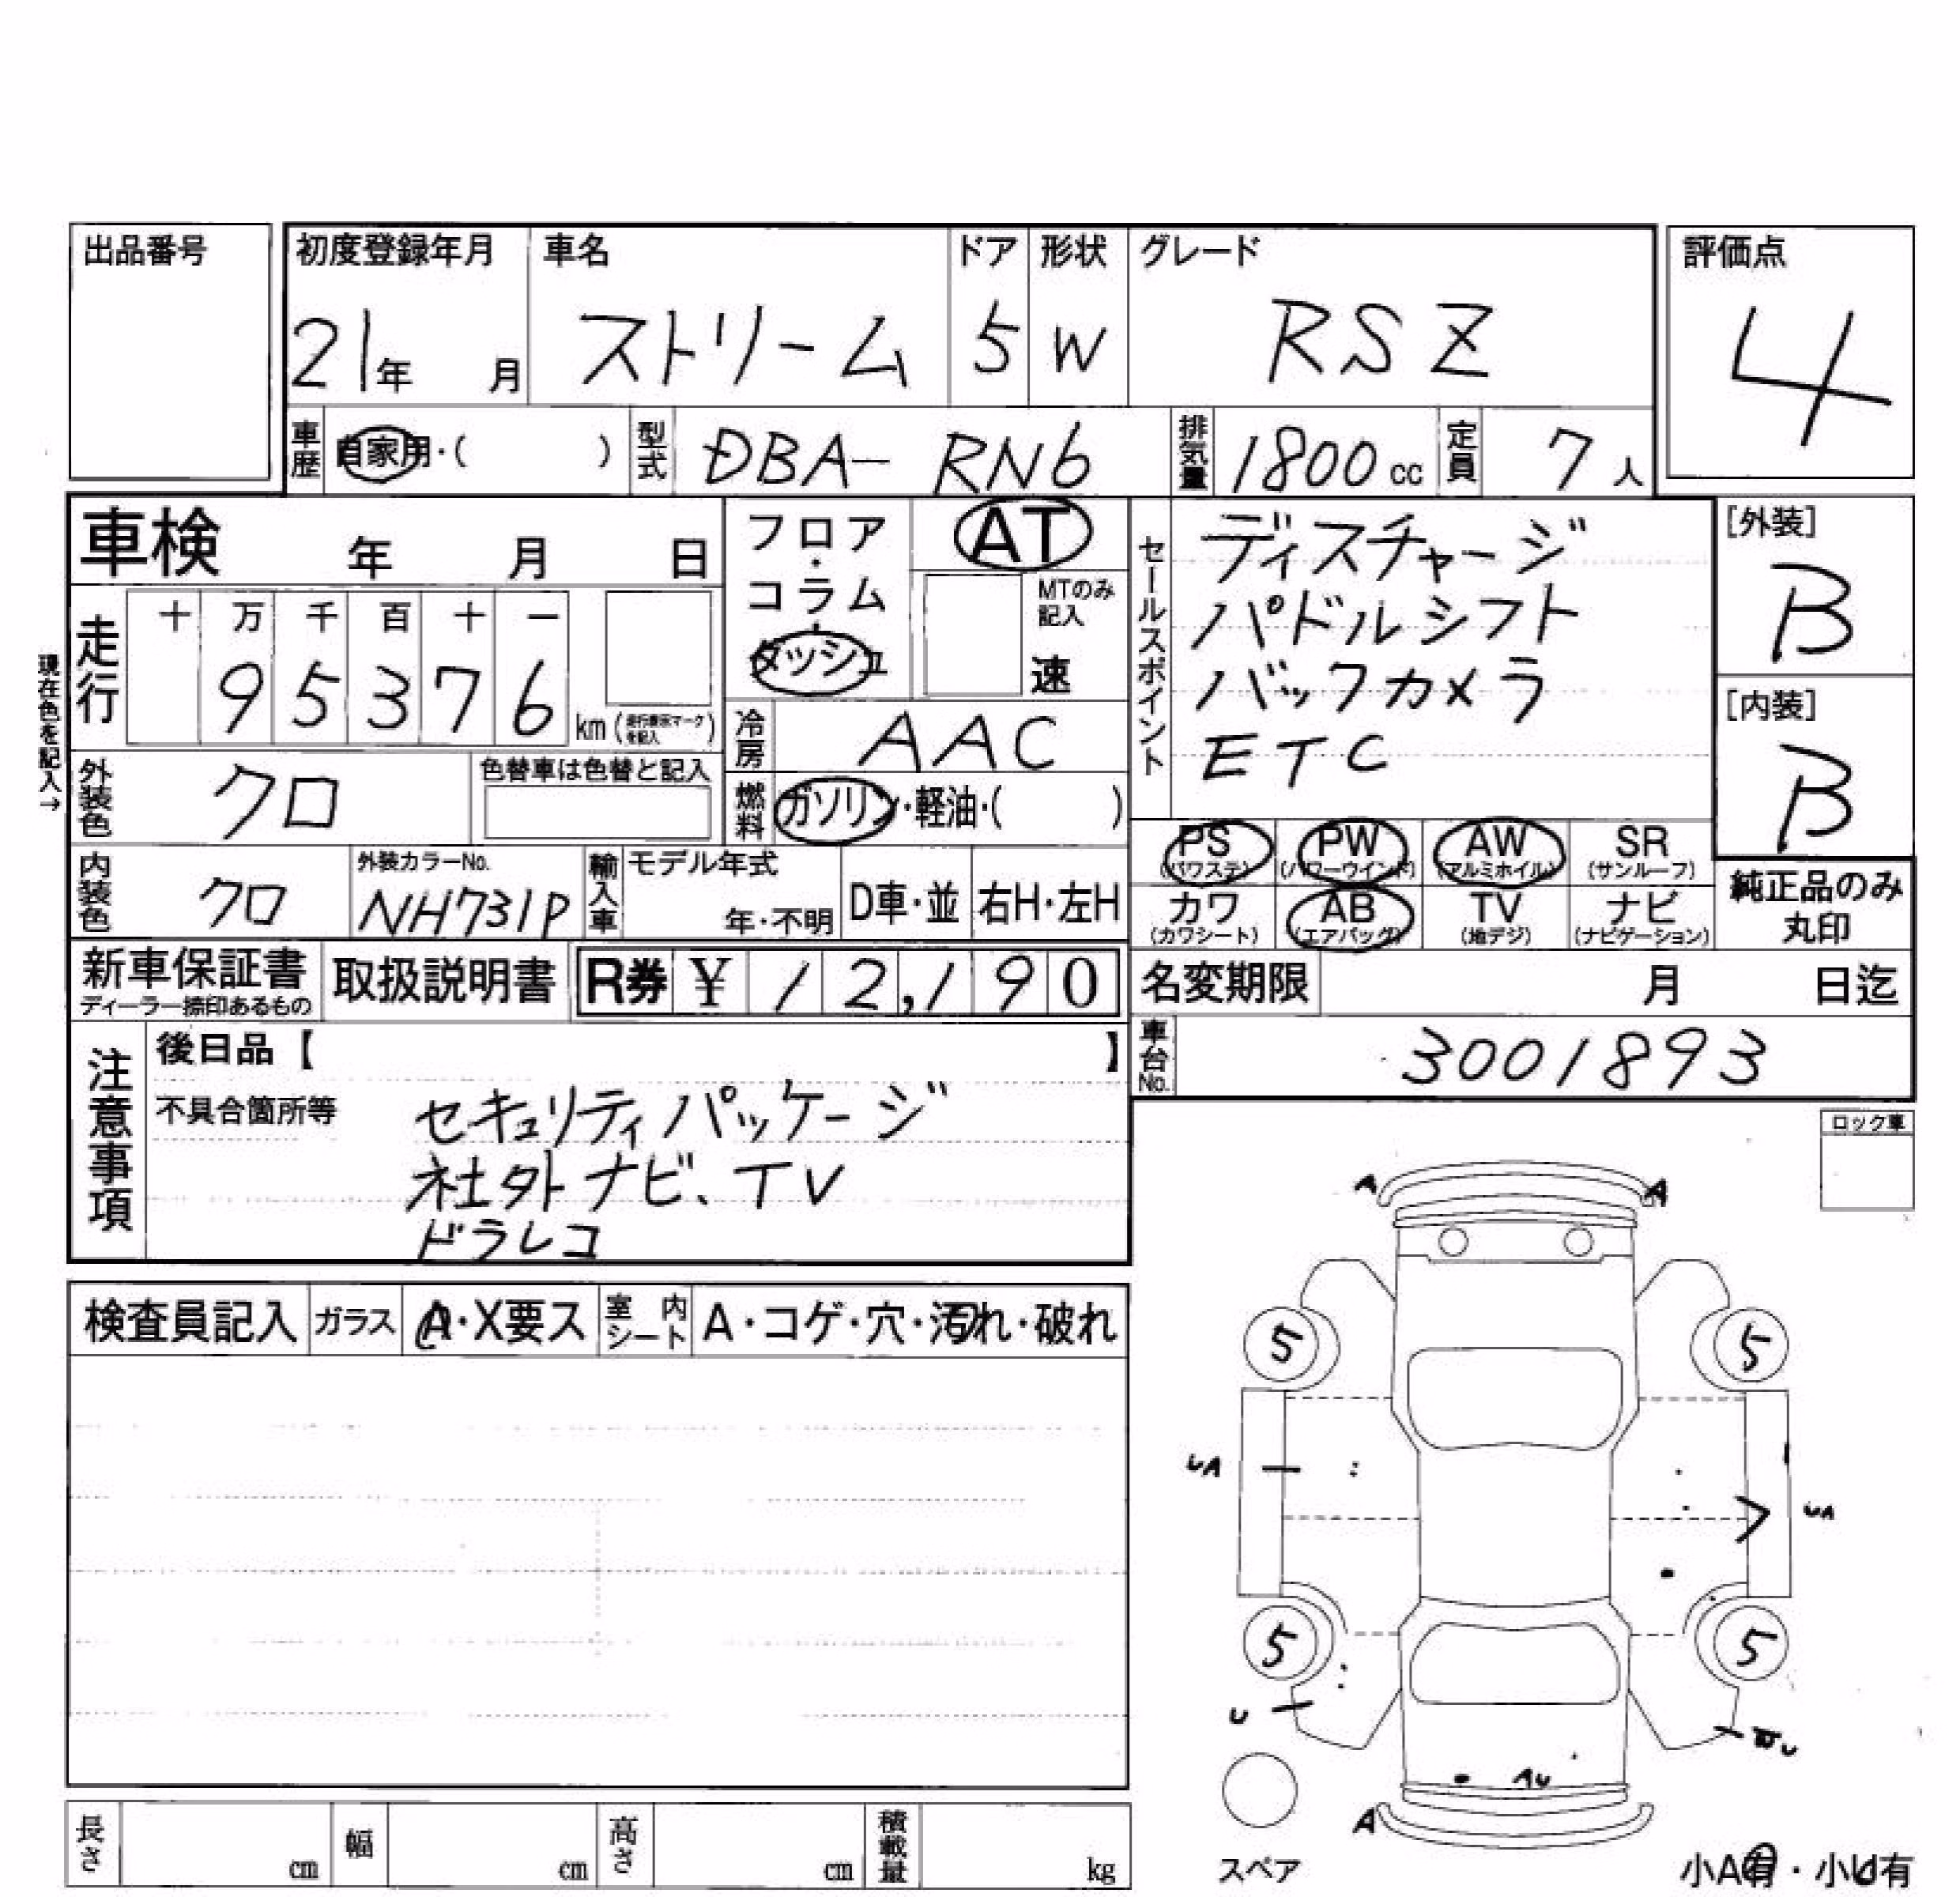 出品番号
初度登録年月 車名 ドア 形状 グレード 評価点
21年 月 ストリーム 5 W RSZ 4
車歴 自家用・( ) 型式 DBA- RN6 排気量 1800cc 定員 7人
車検 年 月 日
フロア・コラム・ダッシュ
AT
MTのみ記入
速
セールスポイント
ディスチャージ
パドルシフト
バックカメラ
ETC
[外装]
B
[内装]
B
現在色を記入→
走行 十 万 千 百 十 一
95376 km(走行表示マークを記入)
冷房 AAC
外装色 クロ 色替車は色替と記入
燃料 ガソリン・軽油・( )
PS(パワステ) PW(パワーウインド) AW(アルミホイル) SR(サンルーフ)
カワ(カワシート) AB(エアバッグ) TV(地デジ) ナビ(ナビゲーション)
純正品のみ丸印
内装色 クロ 外装カラーNo. NH731P 輸入車 モデル年式 年・不明 D車・並 右H・左H
新車保証書 ディーラー捺印あるもの 取扱説明書 R券 ¥12,190
名変期限 月 日迄
車台No. 3001893
注意事項
後日品【 】
不具合箇所等 セキュリティパッケージ
社外ナビ、TV
ドラレコ
ロック車
A A
検査員記入 ガラス A・X要ス 室内シート A・コゲ・穴・汚れ・破れ
5 5
UA UA
5 5
U U
AU
A
スペア
小A有・小U有
長さ cm 幅 cm 高さ cm 積載量 kg